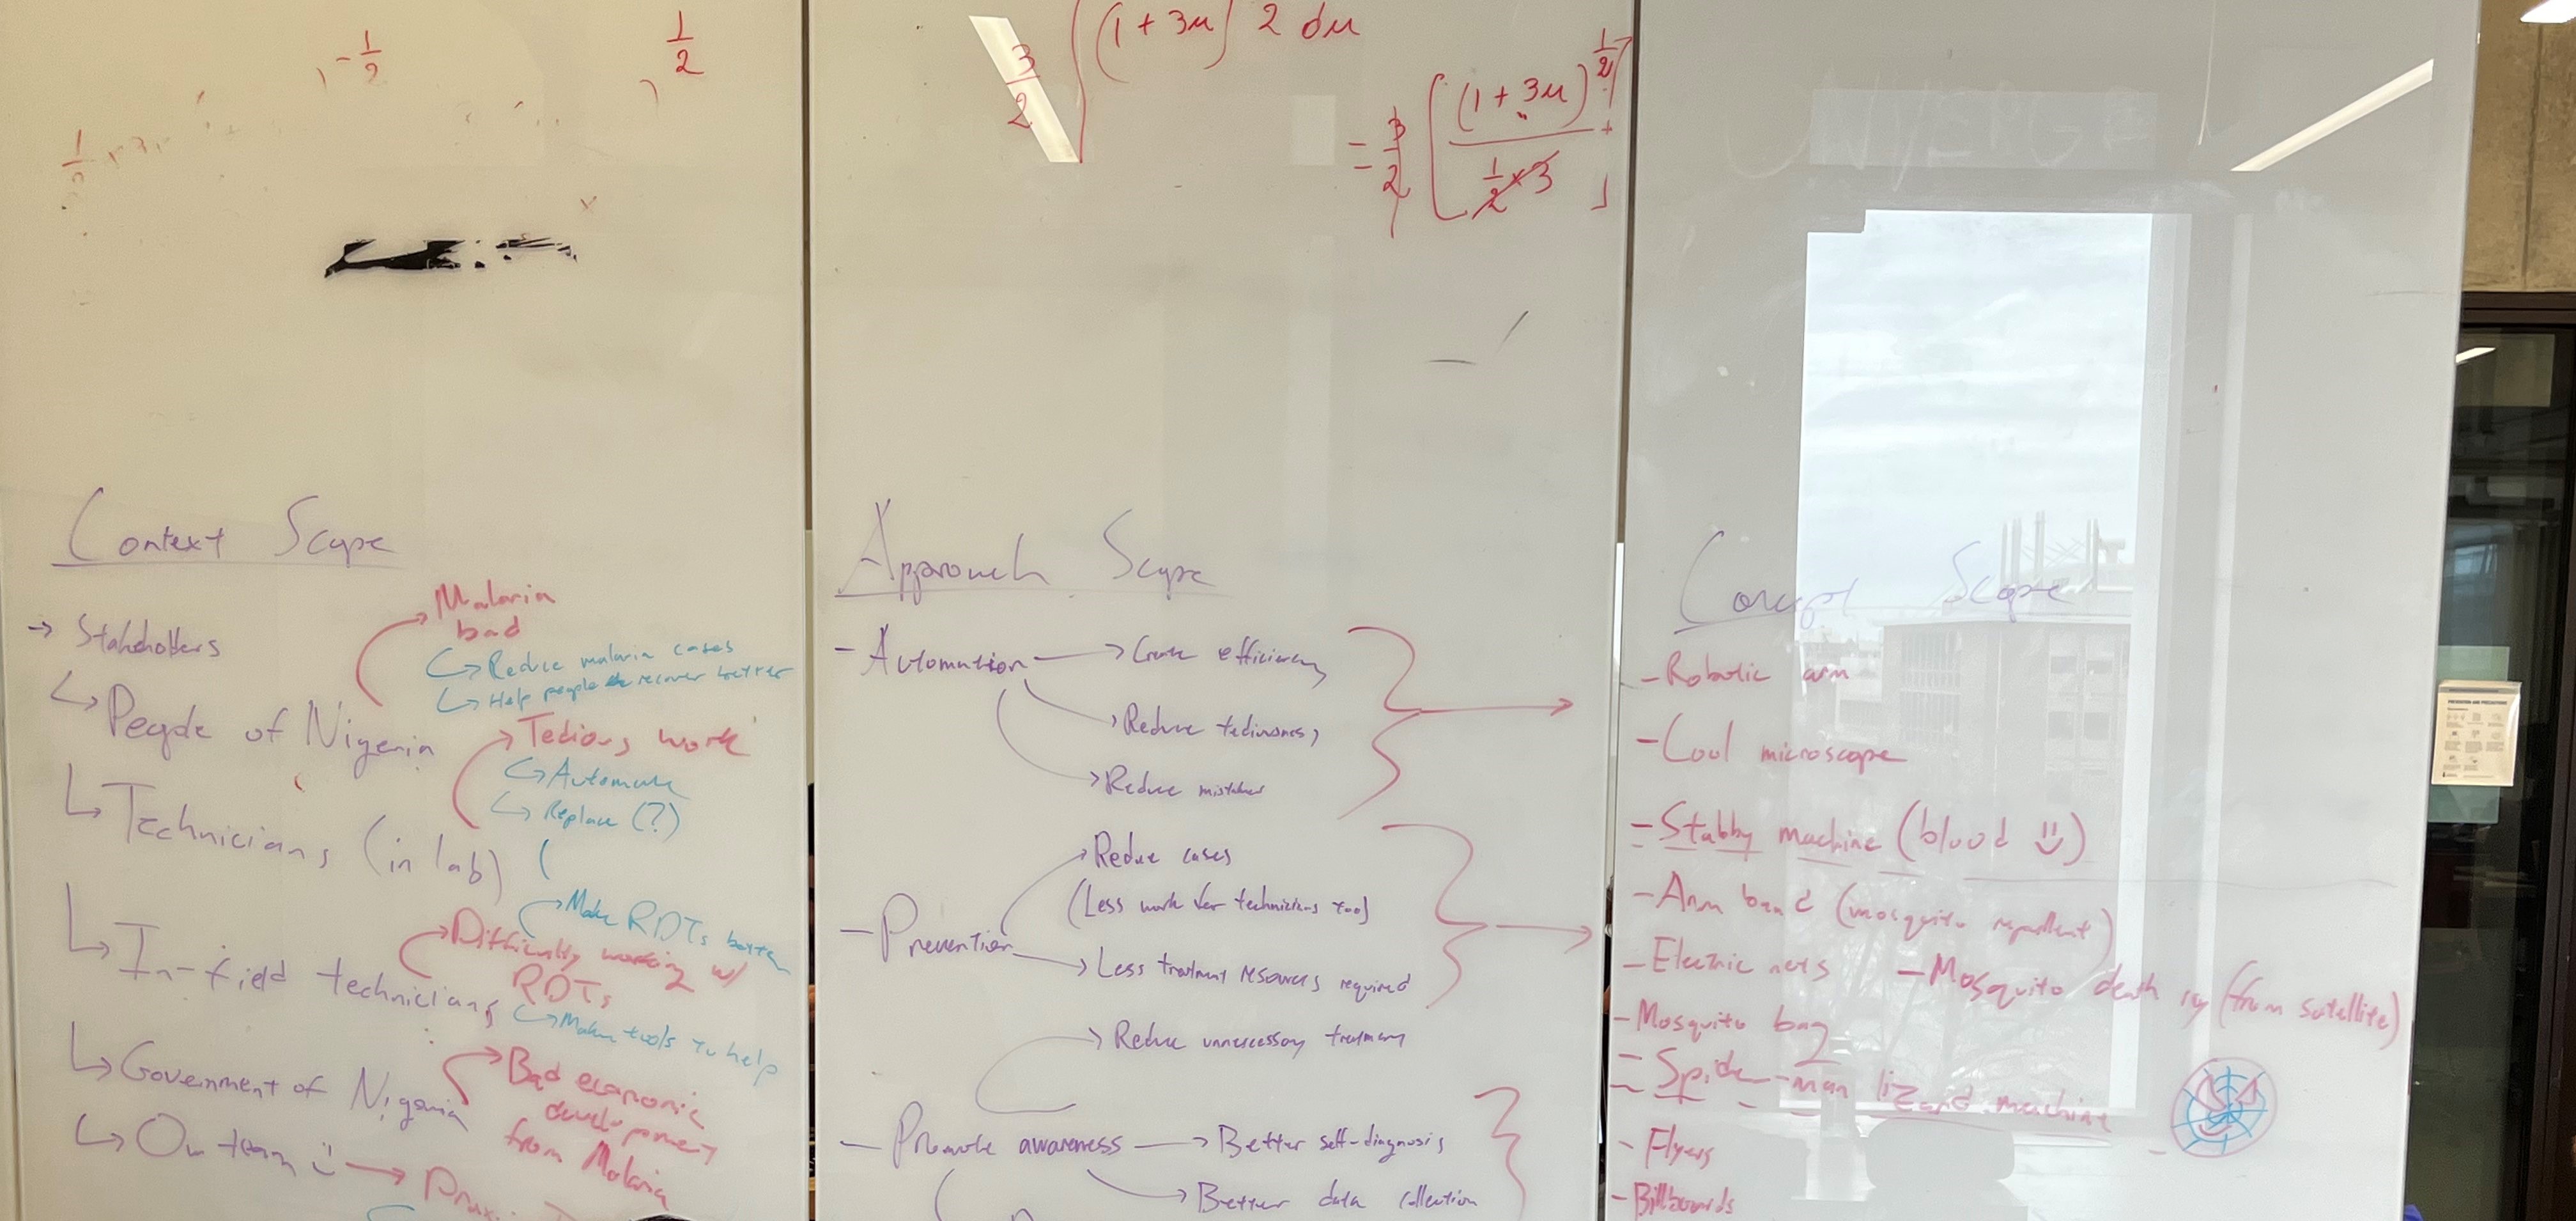 -1/2
1/2
3/2 ∫(1 + 3u) 2 du
= 3/2 [(1 + 3u)^1/2
1/2 × 3 ]
Context Scope
→ Stakeholders
↳ People of Nigeria
Malaria
bad
↳ Reduce malaria cases
↳ Help people recover better
↳ Technicians (in lab)
Tedious work
↳ Automate
↳ Replace (?)
↳ In-field technicians
Difficulty working w/
RDTs
→ Make RDTs better
↳ Make tools to help
↳ Government of Nigeria
Bad economic
development
from Malaria
↳ Our team →
Approach Scope
- Automation → Create efficiency
→ Reduce tediousness
→ Reduce mistakes
- Prevention → Reduce cases
(Less work for technicians too)
→ Less treatment resources required
- Promote awareness → Reduce unnecessary treatment
→ Better self-diagnosis
→ Better data collection
Concept Scope
- Robotic arm
- Cool microscope
- Stabby machine (blood)
- Arm band (mosquito repellent)
- Electric nets
- Mosquito death ray (from satellite)
- Mosquito bag
- Spider-man lizard machine
- Flyers
- Billboards